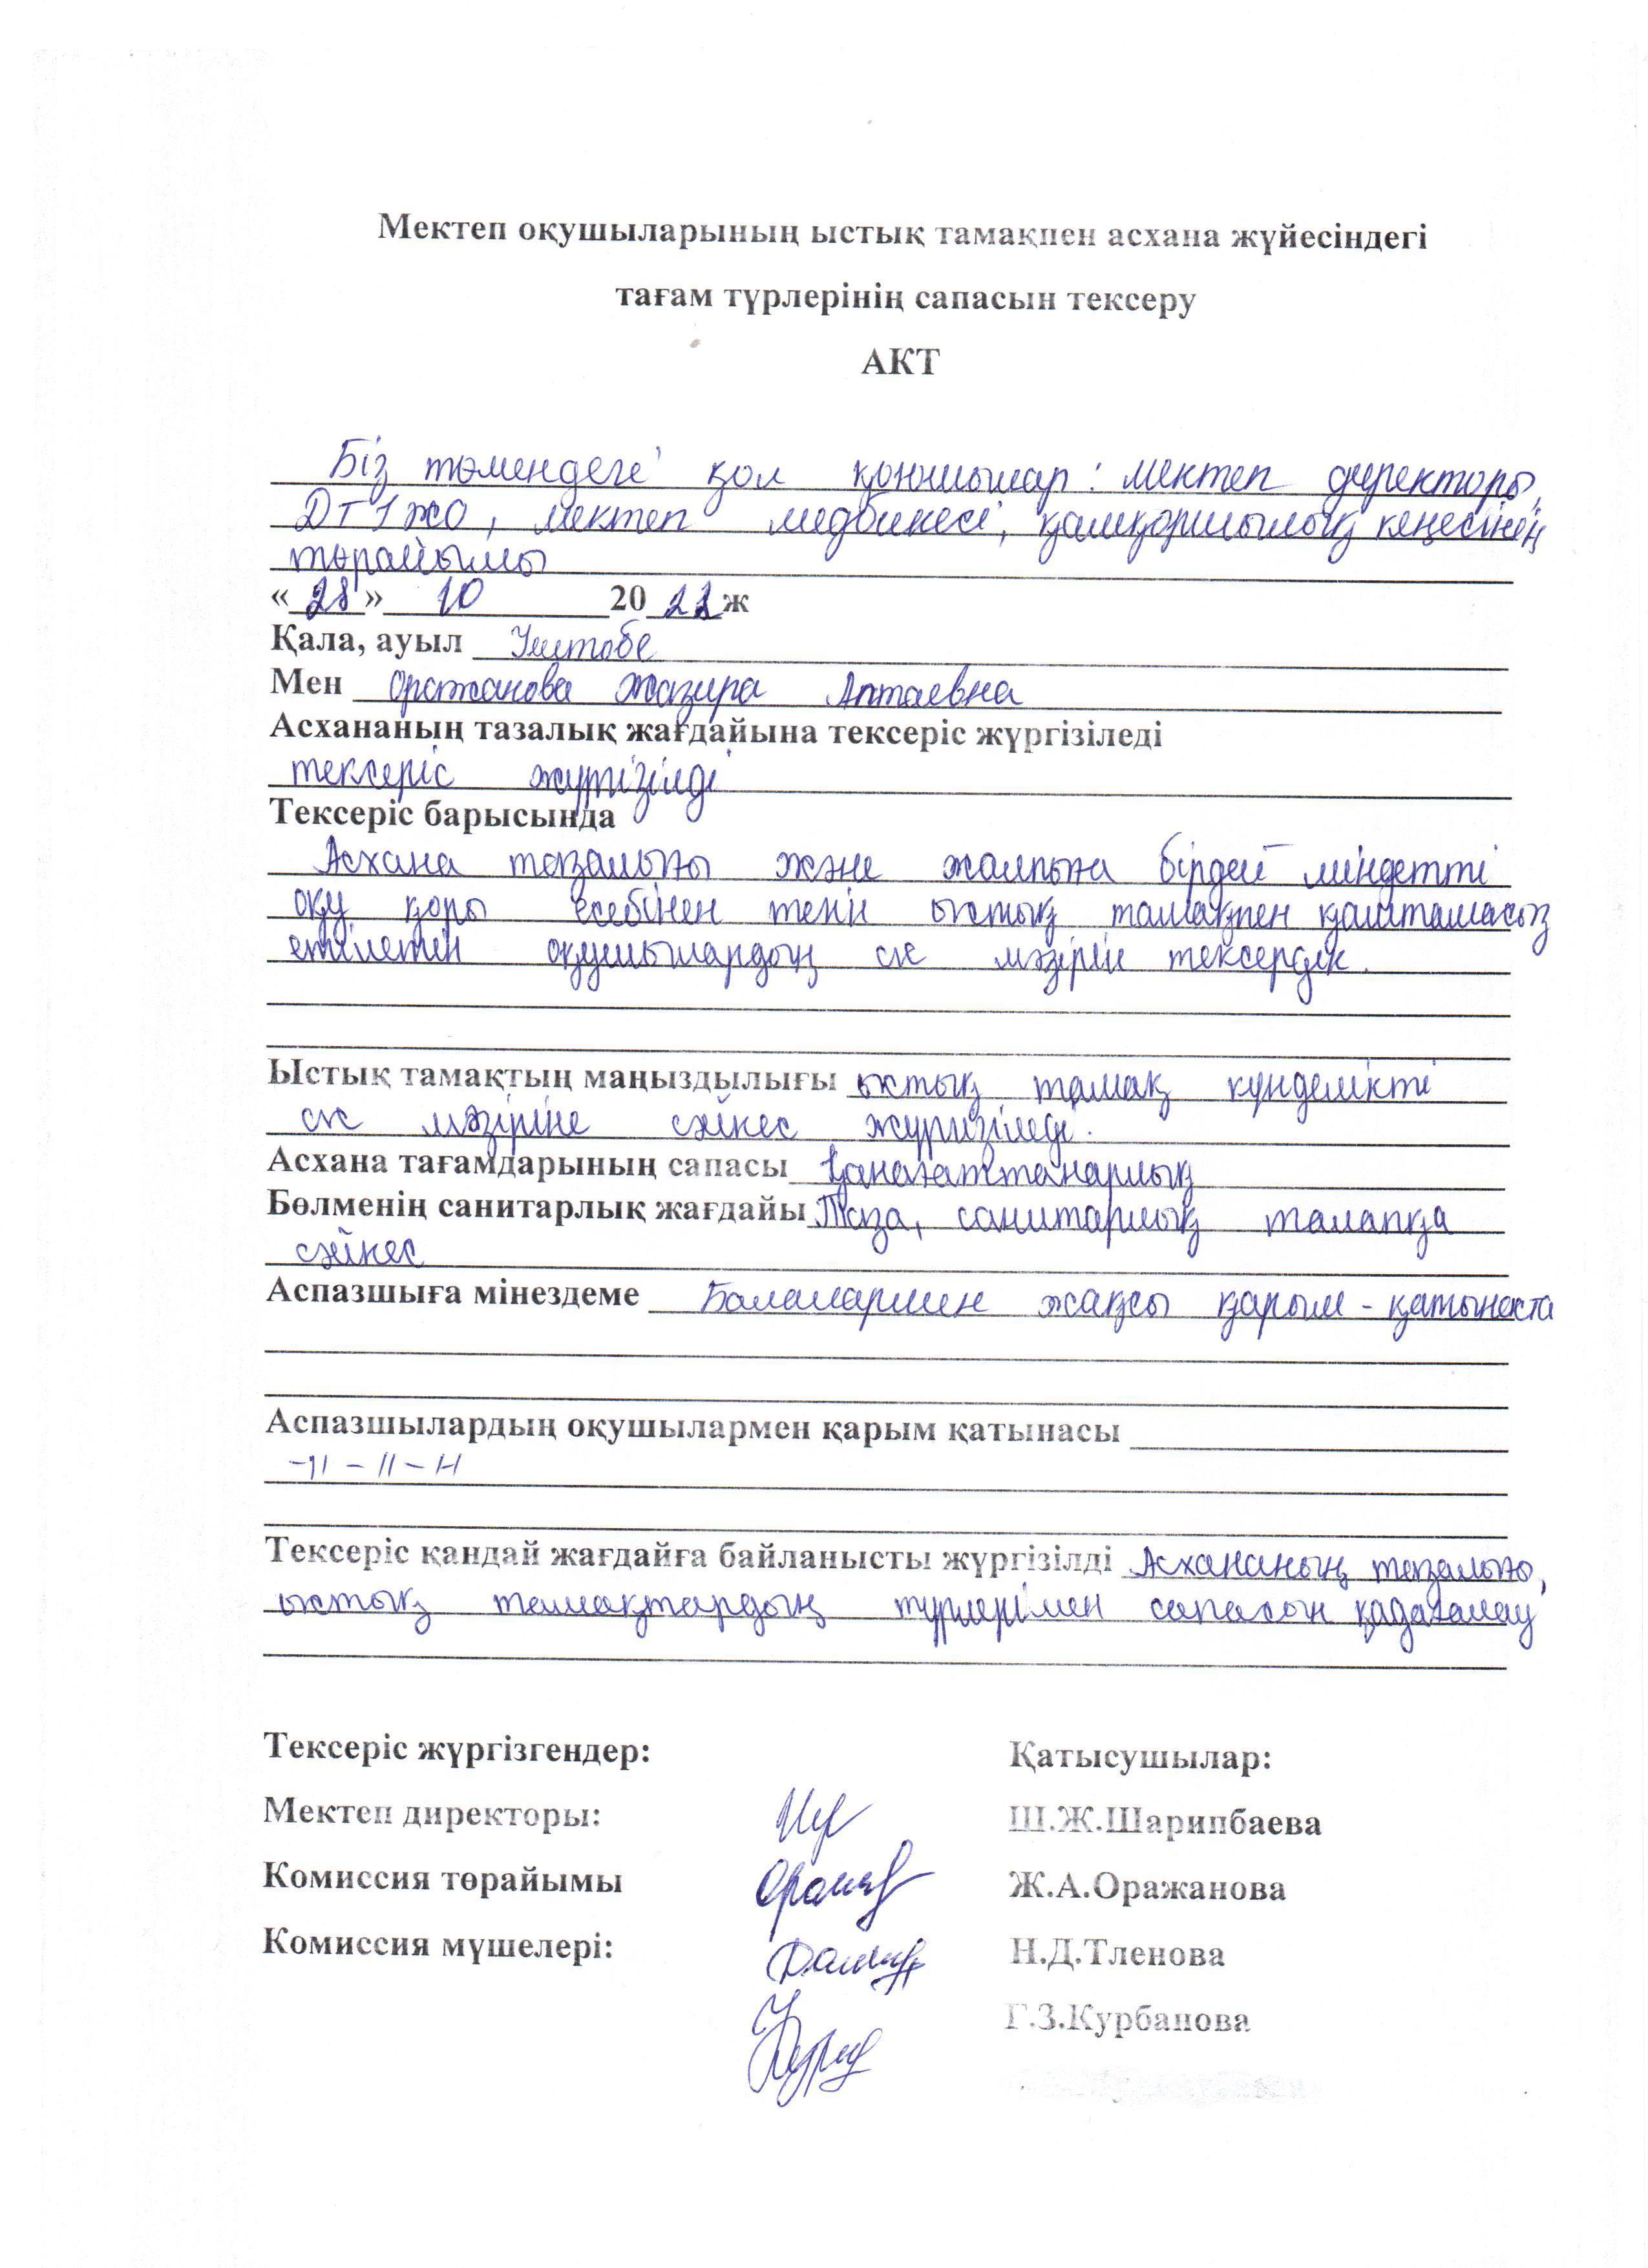 Мектеп оқушыларының ыстық тамақпен асхана жүйесіндегі
тағам түрлерінің сапасын тексеру
АКТ
Біз төмендегі қол қоюшылар: мектеп директоры,
ДТІЖО, мектеп медбикесі, қамқоршылық кеңесінің
төрайымы
«28» 10 2022ж
Қала, ауыл Үштобе
Мен Оражанова Жазира Аптаевна
Асхананың тазалық жағдайына тексеріс жүргізіледі
тексеріс жүргізілді
Тексеріс барысында
Асхана тазалығы және жалпыға бірдей міндетті
оқу қоры есебінен тегін ыстық тамақпен қамтамасыз
етілетін оқушылардың ас мәзірін тексердік.
Ыстық тамақтың маңыздылығы ыстық тамақ күнделікті
ас мәзіріне сәйкес жүргізіледі.
Асхана тағамдарының сапасы қанағаттанарлық
Бөлменің санитарлық жағдайы Таза, санитарлық талапқа
сәйкес
Аспазшыға мінездеме Балалармен жақсы қарым - қатынаста
Аспазшылардың оқушылармен қарым қатынасы
-11 - 11 - 11
Тексеріс қандай жағдайға байланысты жүргізілді Асхананың тазалығы,
ыстық тамақтардың түрлері мен сапасын қадағалау
Тексеріс жүргізгендер: Қатысушылар:
Мектеп директоры: Ш.Ж.Шарипбаева
Комиссия төрайымы Ж.А.Оражанова
Комиссия мүшелері: Н.Д.Тленова
Г.З.Курбанова